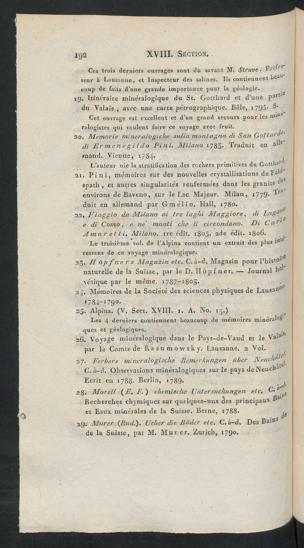 192 XVIII. SECTION.
Ces trois derniers ouvrages sont du savant M. Struve, Profes-
seur à Lausanne, et Inspecteur des salines. Ils contiennent beau-
coup de faits d'une grande importance pour la géologie.
19. Itinéraire minéralogique du St. Gotthard et d'une partie
du Valais, avec une carte pétrographique. Bâle, 1795. 8.
Cet ouvrage est excellent et d'un grand secours pour les miné-
ralogistes qui veulent faire ce voyage avec fruit.
20. Memorie mineralogiche sulla montagna di San Gottardo,
di Ermenegildo Pini. Milano 1783. Traduit en alle-
mand. Vienne, 1784.
L'auteur nie la stratification des rochers primitives de Gotthard.
21. Pini, mémoires sur des nouvelles crystallisations de Feld-
spath, et autres singularités renfermées dans les granits des
environs de Baveno, sur le Lac Majeur. Milan, 1779. Tra-
duit en allemand par Gmélin. Hall, 1780.
22. Viaggio da Milano ai tre laghi Maggiore, di Lugano
e di Como, e ne' monti che li circondano. Di Carlo
Amoretti, Milano. 1re édit. 1805. 2de édit. 1806.
Le troisième vol. de l'Alpina contient un extrait des plus inté-
ressans de ce voyage minéralogique.
23. Höpfners Magazin etc. C.à-d. Magasin pour l'histoire
naturelle de la Suisse, par le D. Höpfner. — Journal hel-
vétique par le même. 1787-1805.
24. Mémoires de la Société des sciences physiques de Lausanne
1784-1790.
25. Alpina. (V. Sect. XVIII. 1. A. No. 15.)
Les 4 derniers contiennent beaucoup de mémoires minéralogi-
ques et géologiques.
26. Voyage minéralogique dans le Pays-de-Vaud et le Valais,
par le Comte de Rasumowsky. Lausanne, 2 Vol.
27. Ferbers mineralogische Bemerkungen über Neuchâtel.
C. à-d. Observations minéralogiques sur le pays de Neuchâtel.
Ecrit en 1788. Berlin, 1789.
28. Morell (E. F.) chemische Untersuchungen etc. C. à-d.
Recherches chymiques sur quelques-uns des principaux Bains
et Eaux minérales de la Suisse. Berne, 1788.
29. Murer (Rud.). Ueber die Bäder etc. C. à-d. Des Bains de
de la Suisse, par M. Murer. Zurich, 1790.